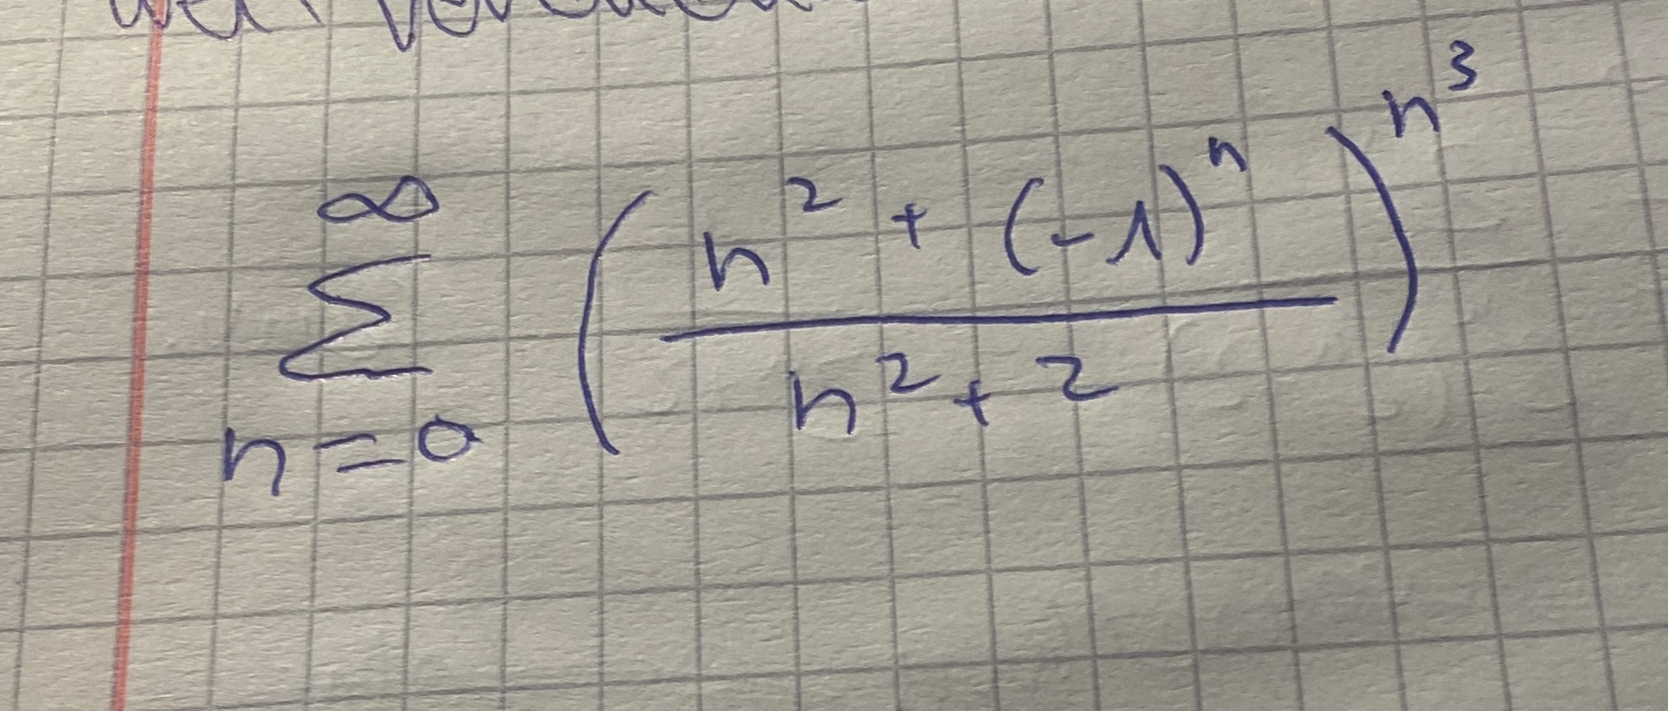 ∑_{n=0}^{∞} ( (n² + (-1)ⁿ) / (n² + 2) )^{n³}